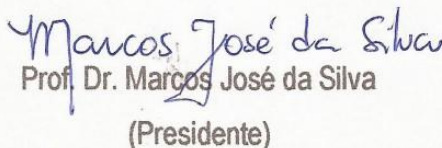 Marcos José da Silva
Prof. Dr. Marcos José da Silva
(Presidente)